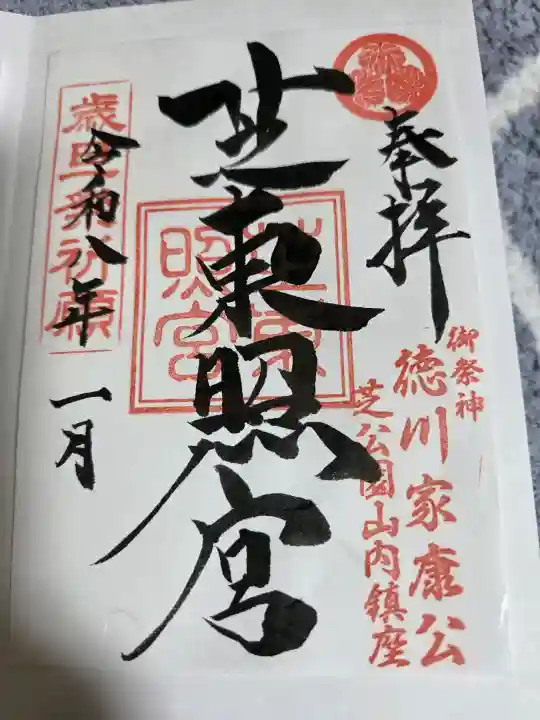 奉拝
御祭神
徳川家康公
芝公園山内鎮座
芝東照宮
芝東照宮
歳旦祭祈願
令和八年 一月